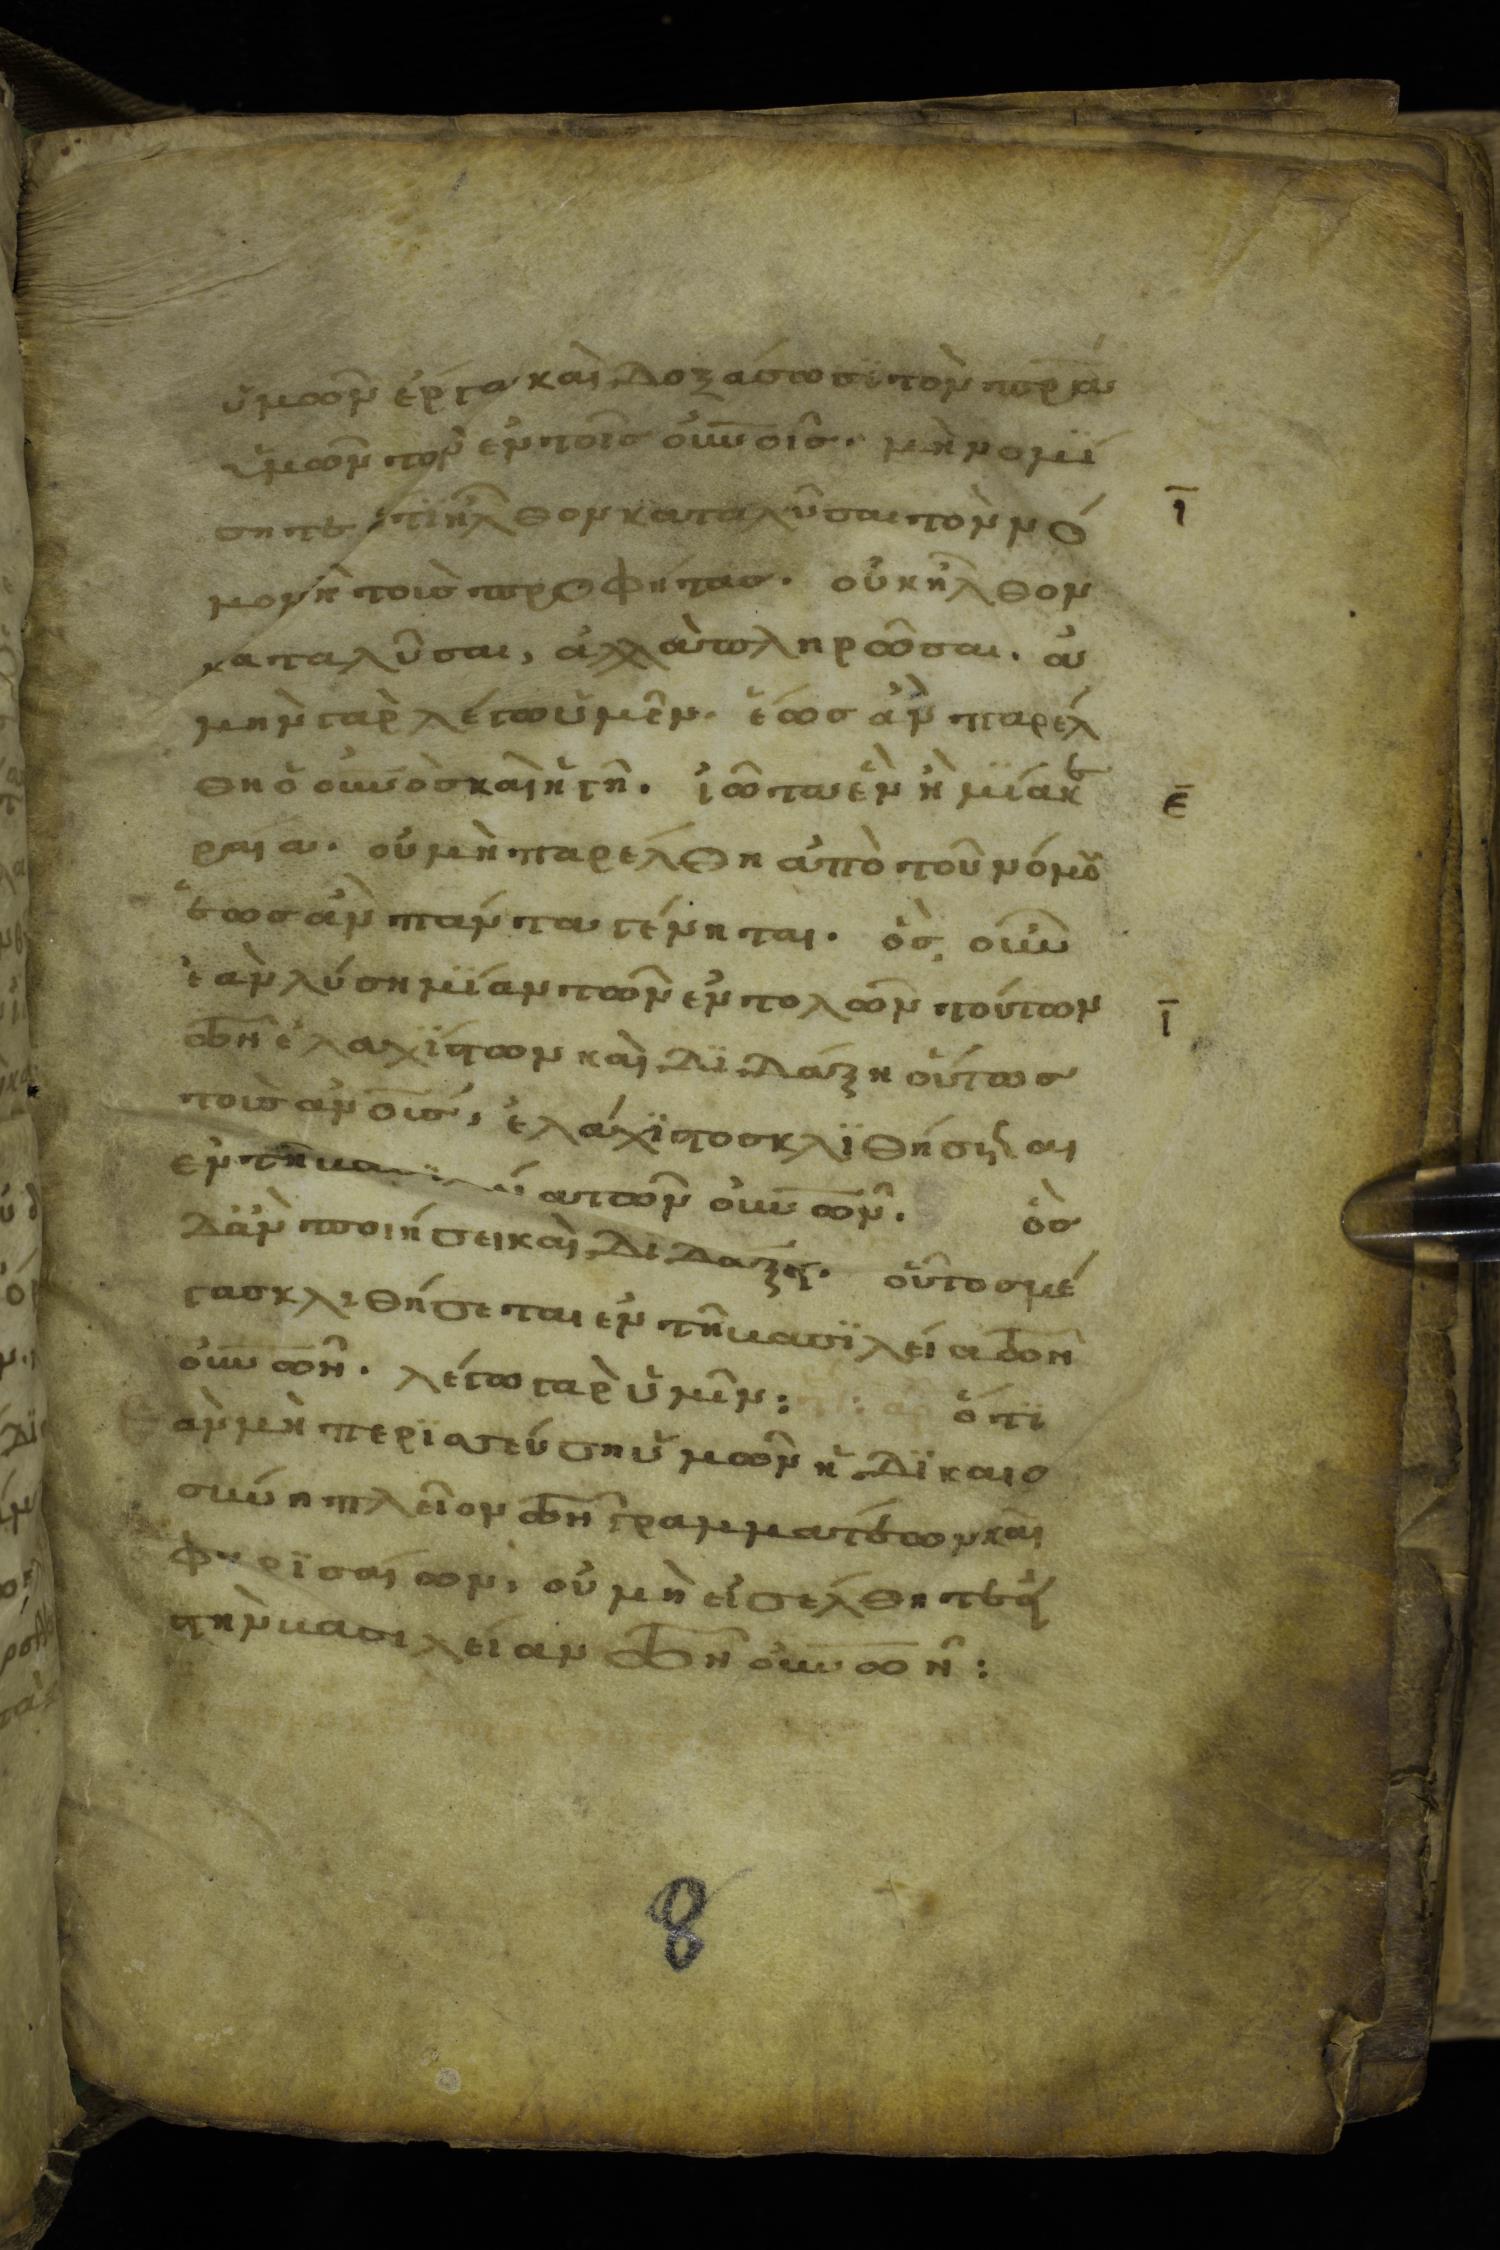 ὑμῶν ἔργα καὶ δοξάσωσϊ τὸν πρ̅α
ὑμῶν τὸν ἐν τοῖς οὐν̅οῖς. μὴ νομϊ
σητε ὅτϊ ἦλθον καταλῦσαι τὸν νό
ι̅
μον ἢ τοὺς προφήτας. οὐκ ἦλθον
καταλῦσαι, ἀλλὰ πληρῶσαι. ἀ
μὴν γὰρ λέγω ὑμῖν. ἕως ἂν παρέλ
θη ὁ οὐν̅ὸς καὶ ἡ γῆ. ἰῶτα ἓν ἢ μϊα κε
ε̅
ραία. οὐ μὴ παρέλθη ἀπὸ τοῦ νόμου
ἕως ἂν πάντα γένηται. ὃς οὖν
ἐὰν λύση μϊαν τῶν ἐντολῶν τούτων
ι̅
τῶν ἐλαχϊστων καὶ δϊδάξη οὕτως
τοὺς ἀν̅ους, ἐλάχϊστος κλϊθήσεται
ἐν τῆ βασϊλεία τῶν οὐν̅ῶν. ὃς
δ' ἂν ποιήσει καὶ διδάξη. οὗτος μέ
γας κλιθήσεται ἐν τῆ βασϊλεία τῶν
οὐν̅ῶν. λέγω γὰρ ὑμῖν: ὅτϊ
ἐὰν μὴ περϊσσεύση ὑμῶν ἡ δϊκαιο
σύνη πλεῖον τῶν γραμματέων καὶ
φαρϊσαίων, οὐ μὴ εἰσέλθητε εἰς
τὴν βασιλείαν τῶν οὐν̅ῶν:
8